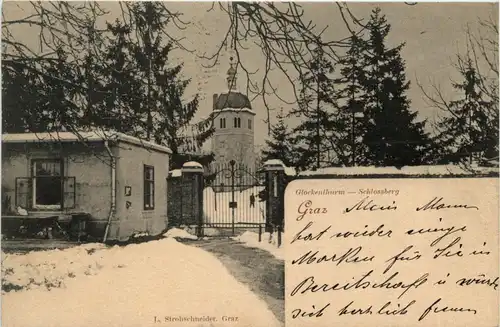 Glockenthurm — Schlossberg
Graz
Mein Mann
hat wieder einige
Marken für Sie in
Bereitschaft u würde
sich herzlich freuen
L. Strohschneider, Graz